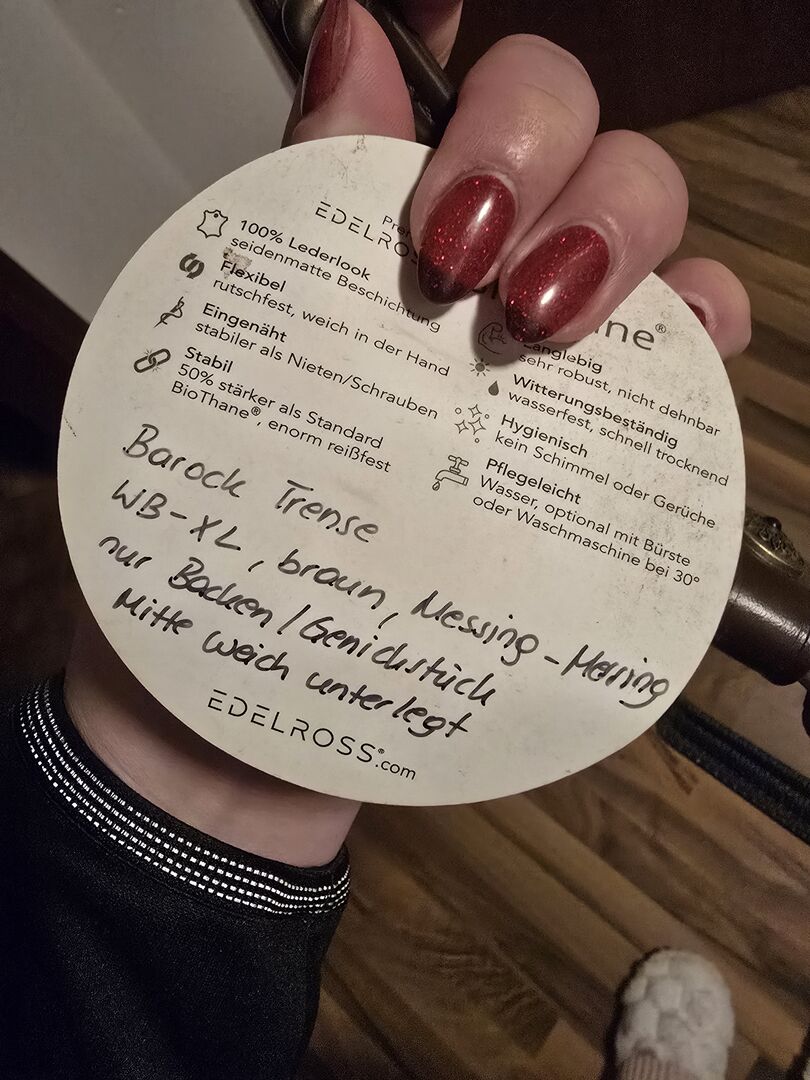 EDELROSS
100% Lederlook
seidenmatte Beschichtung
Flexibel
rutschfest, weich in der Hand
Eingenäht
stabiler als Nieten/Schrauben
Stabil
50% stärker als Standard
BioThane®, enorm reißfest
Langlebig
sehr robust, nicht dehnbar
Witterungsbeständig
wasserfest, schnell trocknend
Hygienisch
kein Schimmel oder Gerüche
Pflegeleicht
Wasser, optional mit Bürste
oder Waschmaschine bei 30°
Barock Trense
WB-XL, braun, Messing-
nur Backen/Genickstück
Mitte weich unterlegt
EDELROSS®.com